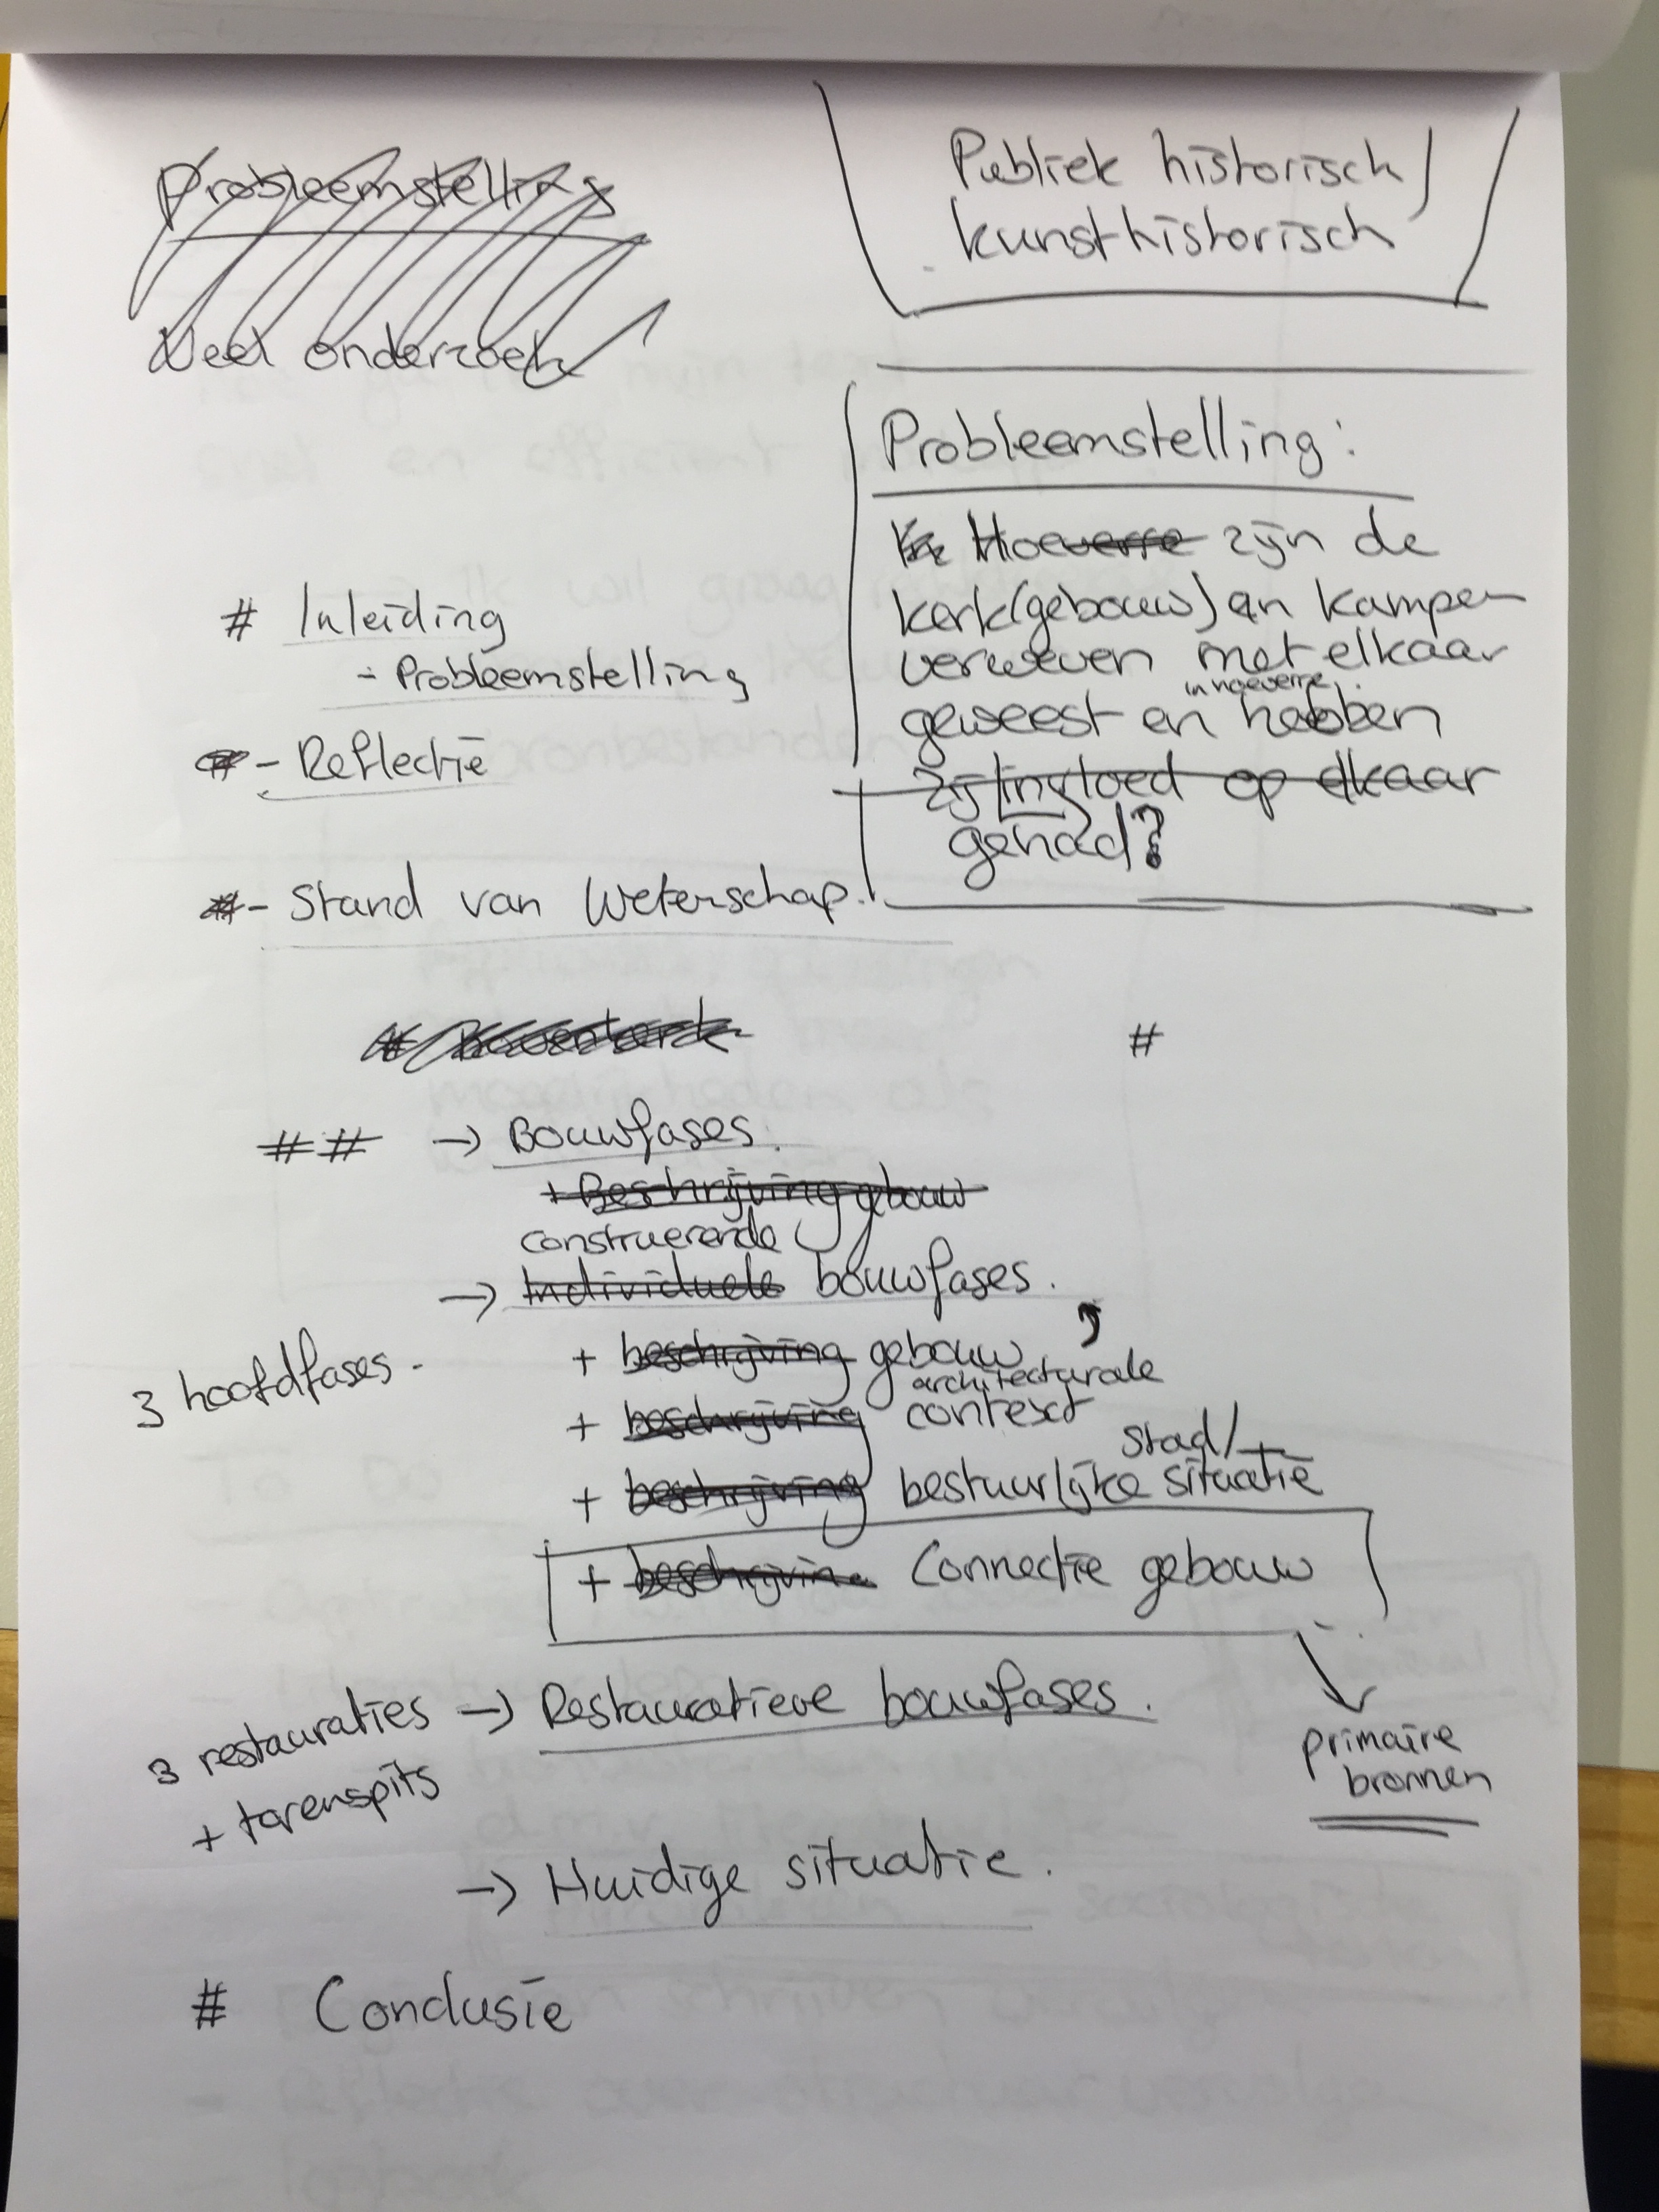 Probleemstelling
Veel onderzoek
Publiek historisch /
kunsthistorisch
Probleemstelling:
Hoeverre zijn de
kerk(gebouw) en Kampen
verweven met elkaar
in hoeverre
geweest en hebben
zij invloed op elkaar
gehad?
# Inleiding
- Probleemstelling
- Reflectie
- Stand van Wetenschap.
#
## → Bouwfases.
+ Beschrijving gebouw
construerende
→ Individuele bouwfases.
3 hoofdfases.
+ beschrijving gebouw
architecturale
+ beschrijving context
stad/
+ beschrijving bestuurlijke situatie
+ beschrijving Connectie gebouw
primaire
bronnen
3 restauraties → Restauratieve bouwfases.
+ torenspits
→ Huidige situatie.
# Conclusie